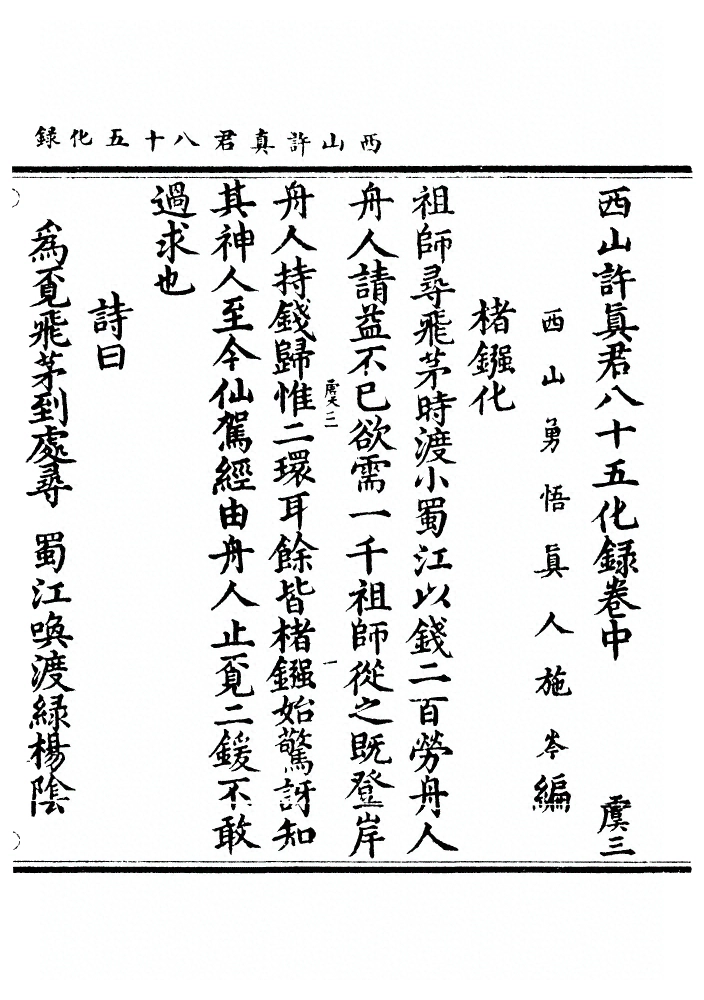 西山許真君八十五化録
西山許眞君八十五化録卷中 虞三
西山勇悟眞人施岑編
楮鏹化
祖師尋飛茅時渡小蜀江以錢二百勞舟人
舟人請益不已欲需一千祖師從之既登岸
一
舟人持錢歸惟二環耳餘皆楮鏹始驚訝知
其神人至今仙駕經由舟人止覔二鍰不敢
過求也
詩曰
為覔飛茅到處尋 蜀江喚渡綠楊陰